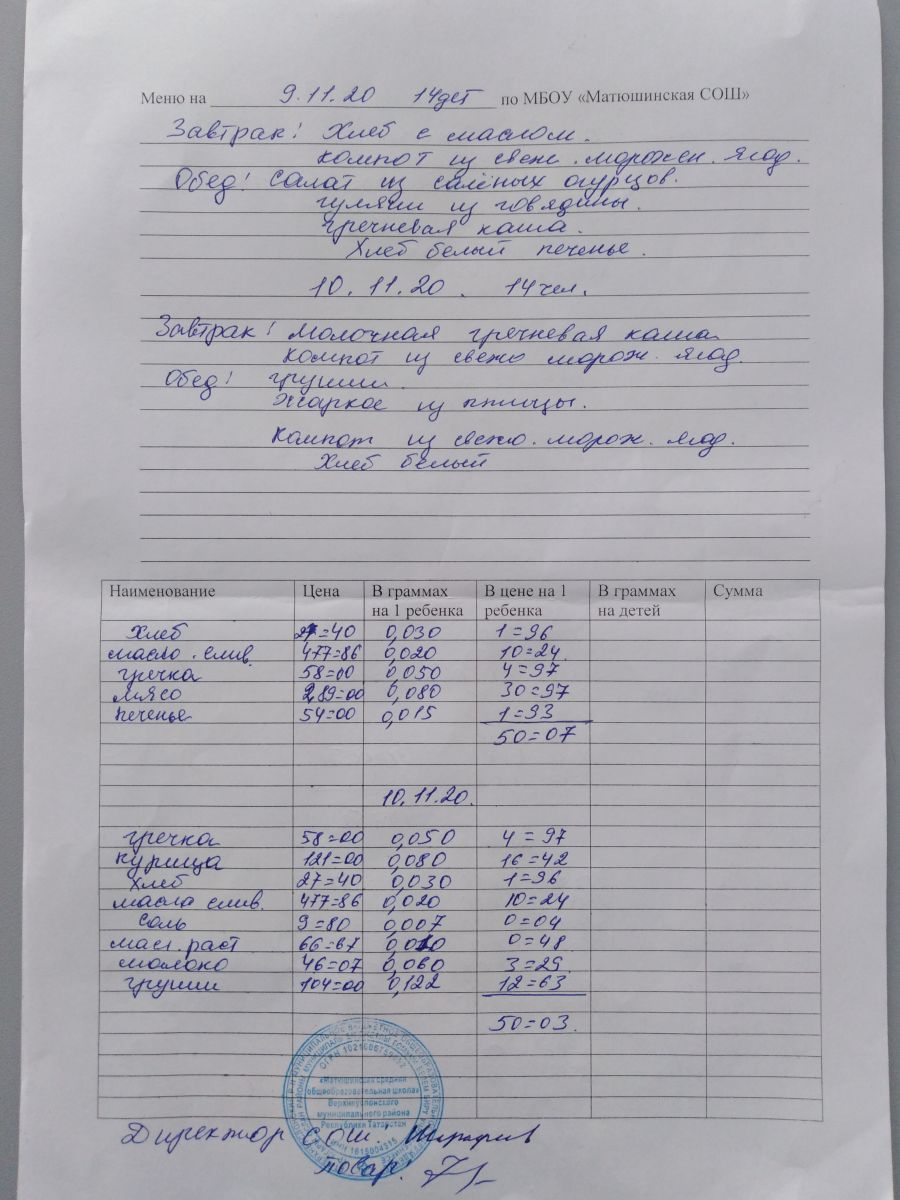 Меню на 9.11.20 14 дет по МБОУ «Матюшинская СОШ»
Завтрак! Хлеб с маслом.
компот из свеж. морожен. ягод.
Обед! Салат из салёных огурцов.
гуляш из говядины.
гречневая каша.
Хлеб белый печенье.
10.11.20. 14 чел.
Завтрак! молочная гречневая каша
компот из свежо морож. ягод.
Обед! груши.
Жаркое из птицы.
Компот из свежо. морож. ягод.
Хлеб белый
Наименование Цена В граммах на 1 ребенка В цене на 1 ребенка В граммах на детей Сумма
Хлеб 27=40 0,030 1=96
масло слив. 477=86 0,020 10=24
гречка 58=00 0,050 4=97
мясо 289=00 0,080 30=97
печенье 54=00 0,015 1=93
50=07
10.11.20.
гречка 58=00 0,050 4=97
курица 121=00 0,080 16=42
хлеб 27=40 0,030 1=96
масла слив. 477=86 0,020 10=24
соль 9=80 0,007 0=04
масл. раст 66=67 0,010 0=48
молоко 46=07 0,060 3=29
груши 104=00 0,122 12=63
50=03.
«Матюшинская средняя
общеобразовательная школа»
Верхнеуслонского
муниципального района
Республики Татарстан
Директор СОШ.
повар: